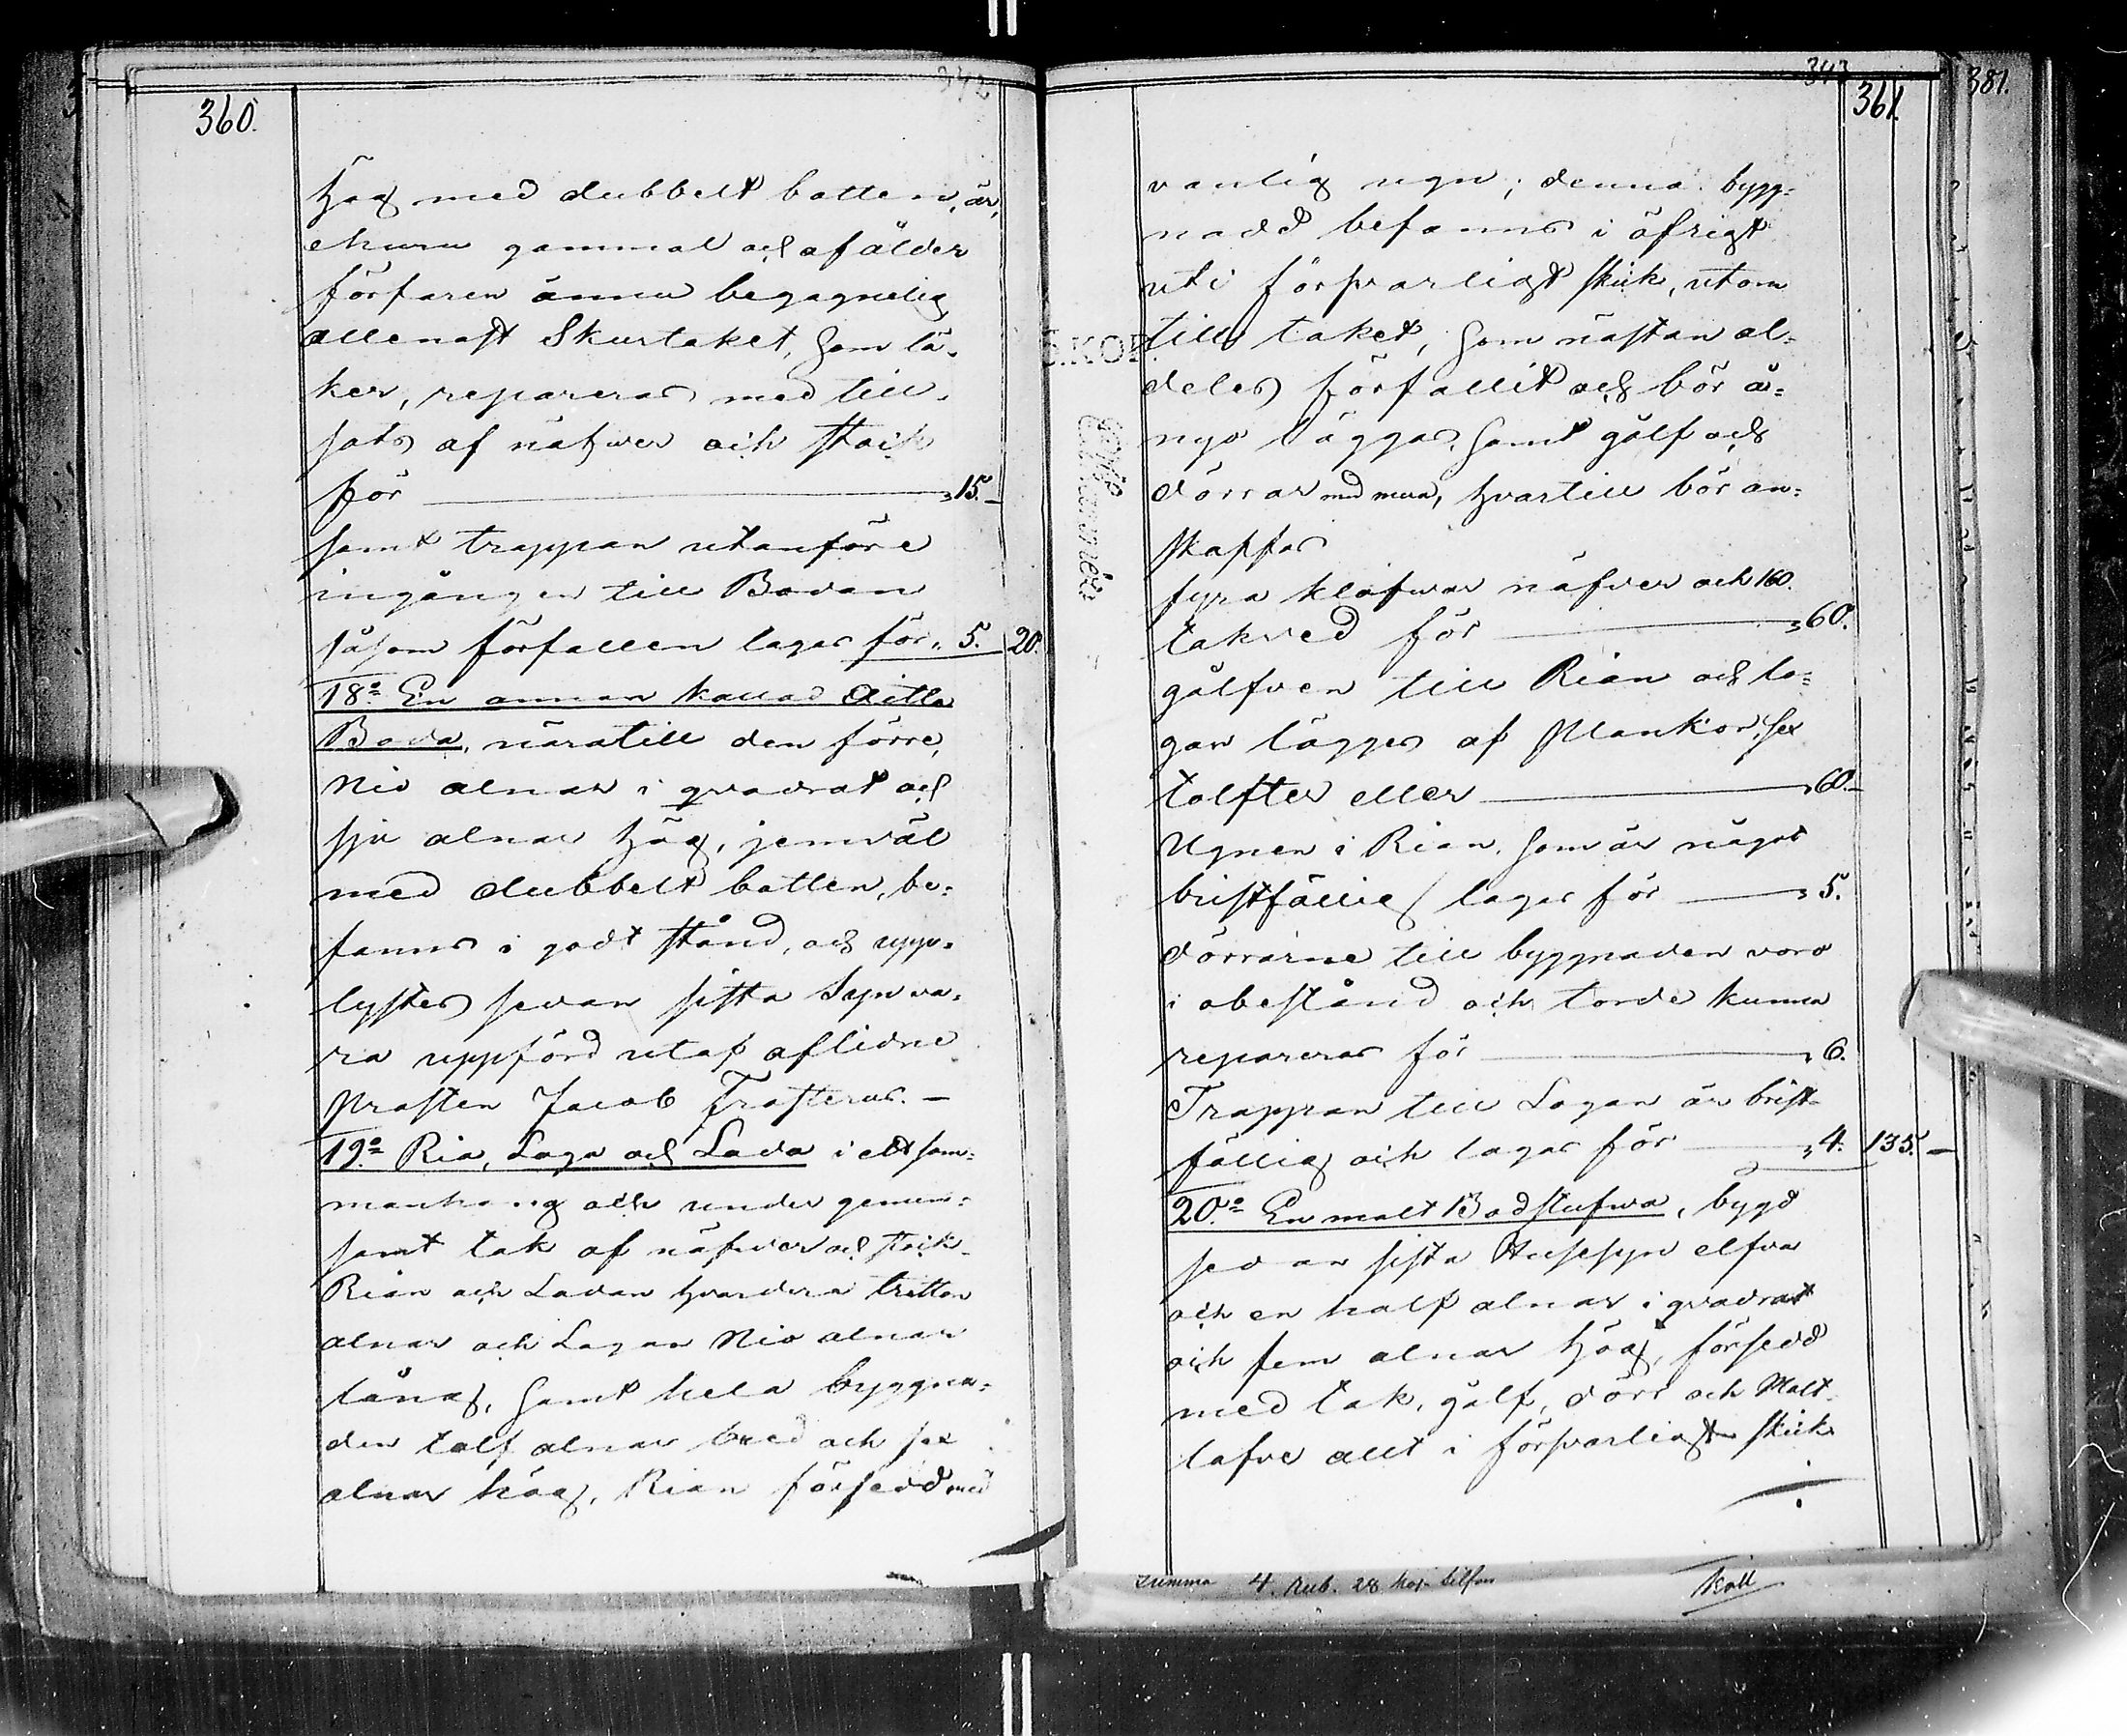 342
360.
hög med dubbelt botten, är,
ehuru gammal och af ålder
förfaren ännu begagnelig
allenast Skurtaket, som lä-
ker, repareras med till-
sats af näfwer och stock
för " 15. -
samt trappan utanföre
ingången till Bodan
såsom förfallen lagas för " 5. 20.
18:o En annan kallad Aitta
Boda, näratill den förre,
Nio alnar i qvadrat och
sju alnar hög, jemväl
med dubbelt botten, be-
fanns i godt stånd, och upp-
lystes sedan sista Syn va-
ra uppförd utaf aflidne
Prosten Jacob Frosterus. -
19:o Ria, Loga och Lada i ett sam-
manhang och under gemen-
samt tak af näfver och stock
Rian och Ladan hvardera tretton
alnar och Logan Nio alnar
lång, samt hela byggna-
den tolf alnar bred och sex
alnar hög, Rian försedd med
343
361.
381.
vanlig ugn; denna bygg-
nadd befanns i öfrigt
uti försvarligt skick, utom
till taket, som nästan al-
deles förfallit och bör å-
nyo läggas, samt gålf och
dörrar med mera, hvartill bör an-
skaffas
fyra klofwar näfver och 160.
takved för " 60.
gålfven till Rian och lo-
gan lägges af Plankor, sex
tolfter eller " 60. -
Ugnen i Rian, som är något
bristfällig lagas för " 5.
dörrarne till byggnaden voro
i obestånd och torde kunna
repareras för " 6.
Trappan till Logan är brist-
fällig och lagas för " 4. 135. -
20:o En malt Badstufwa, bygd
sedan sista Husesyn elfva
och en half alnar i qvadrat
och fem alnar hög, försedd
med tak, gålf, dörr och Malt-
lafve allt i försvarligt skick
Summa 4. Rub. 28 kop. silfver